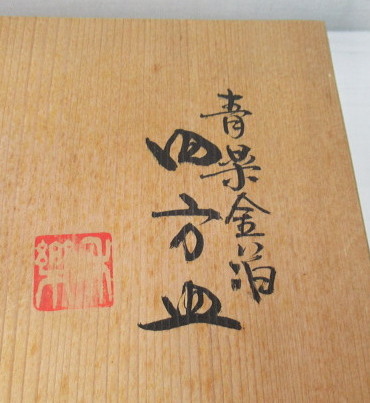 青楽金箔
四方皿